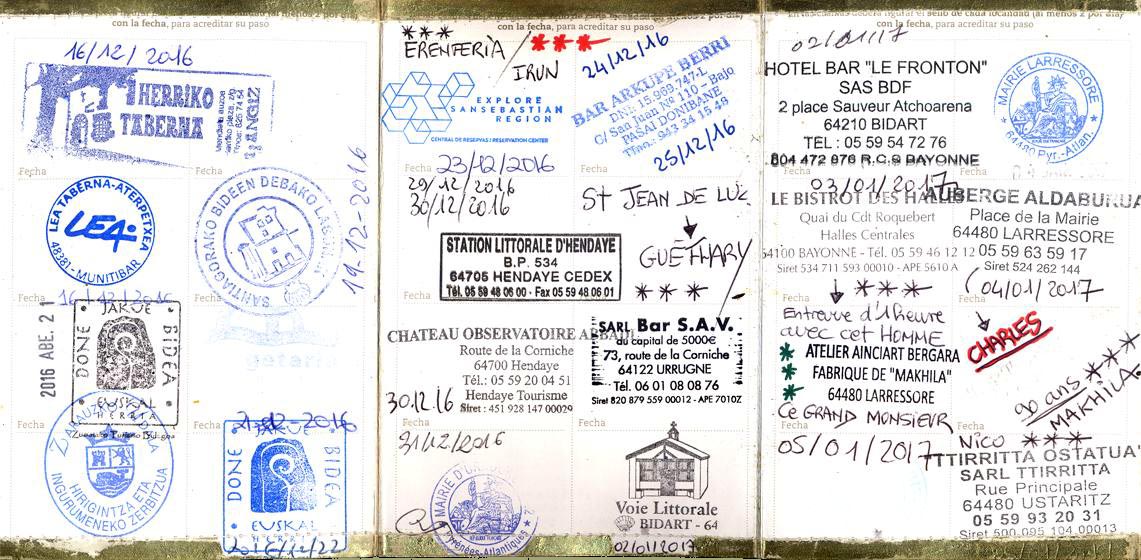 con la fecha, para acreditar su paso
16/12/2016
HERRIKO
TABERNA
TJANGIZ
Fecha
LEA TABERNA-ATERPETXEA
LEA
48381 - MUNITIBAR
SANTIAGORAKO BIDEEN DEBAKO LAGUNAK
19-12-2016
Fecha
16/12/2016
Fecha
2016 ABE. 21
DONE
JAKUE
BIDEA
EUSKAL
HERRIA
getaria
Fecha
HIRIGINTZA ETA
INGURUMENEKO ZERBITZUA
Fecha
21-12-2016
DONE
JAKUE
BIDEA
EUSKAL
2016/12/22
con la fecha, para acreditar su paso
*** ERENFERIA / ***
IRUN
EXPLORE
SANSEBASTIAN
REGION
CENTRAL DE RESERVAS / RESERVATION CENTER
Fecha 23/12/2016
24/12/16
BAR ARKUPE BERRI
C/ San Juan Nº 110 - Bajo
PASAI DONIBANE
Tfno. 943 34 15 49
25/12/16
Fecha
29/12/2016
30/12/2016
STATION LITTORALE D'HENDAYE
B.P. 534
64705 HENDAYE CEDEX
Tél. 05 59 48 06 00 - Fax 05 59 48 06 01
Fecha
St JEAN DE LUZ
GUÉTHARY
***
Fecha
CHATEAU OBSERVATOIRE ABBADIA
Route de la Corniche
64700 Hendaye
Tél.: 05 59 20 04 51
Hendaye Tourisme
Siret : 451 928 147 00029
30.12.16
SARL Bar S.A.V.
au capital de 5000€
73, route de la Corniche
64122 URRUGNE
Tél. 06 01 08 08 76
Siret 820 879 559 00012 - APE 7010Z
Fecha
31/12/2016
MAIRIE D'URRUGNE
Pyrénées-Atlantiques
Fecha
Voie Littorale
BIDART - 64
02/01/2017
con la fecha, para acreditar su paso
02/01/17
HOTEL BAR "LE FRONTON"
SAS BDF
2 place Sauveur Atchoarena
64210 BIDART
TÉL : 05 59 54 72 76
804 472 976 R.C.S BAYONNE
MAIRIE LARRESSORE
64480 Pyr.-Atlan.
Fecha
03/01/2017
LE BISTROT DES HALLES
Quai du Cdt Roquebert
Halles Centrales
64100 BAYONNE - Tél. 05 59 46 12 12
Siret 534 711 593 00010 - APE 5610 A
AUBERGE ALDABURUA
Place de la Mairie
64480 LARRESSORE
05 59 63 59 17
Siret 524 262 144
04/01/2017
Fecha
***
Entrevue d'1 heure
avec cet HOMME
* ATELIER AINCIART BERGARA
* FABRIQUE DE "MAKHILA"
* 64480 LARRESSORE
Ce GRAND MONSIEUR
Fecha
CHARLES
90 ans ***
MAKHILA.
Fecha
05/01/2017
NICO ***
TTIRRITTA OSTATUA
SARL TTIRRITTA
Rue Principale
64480 USTARITZ
05 59 93 20 31
Siret 500 095 104 00013